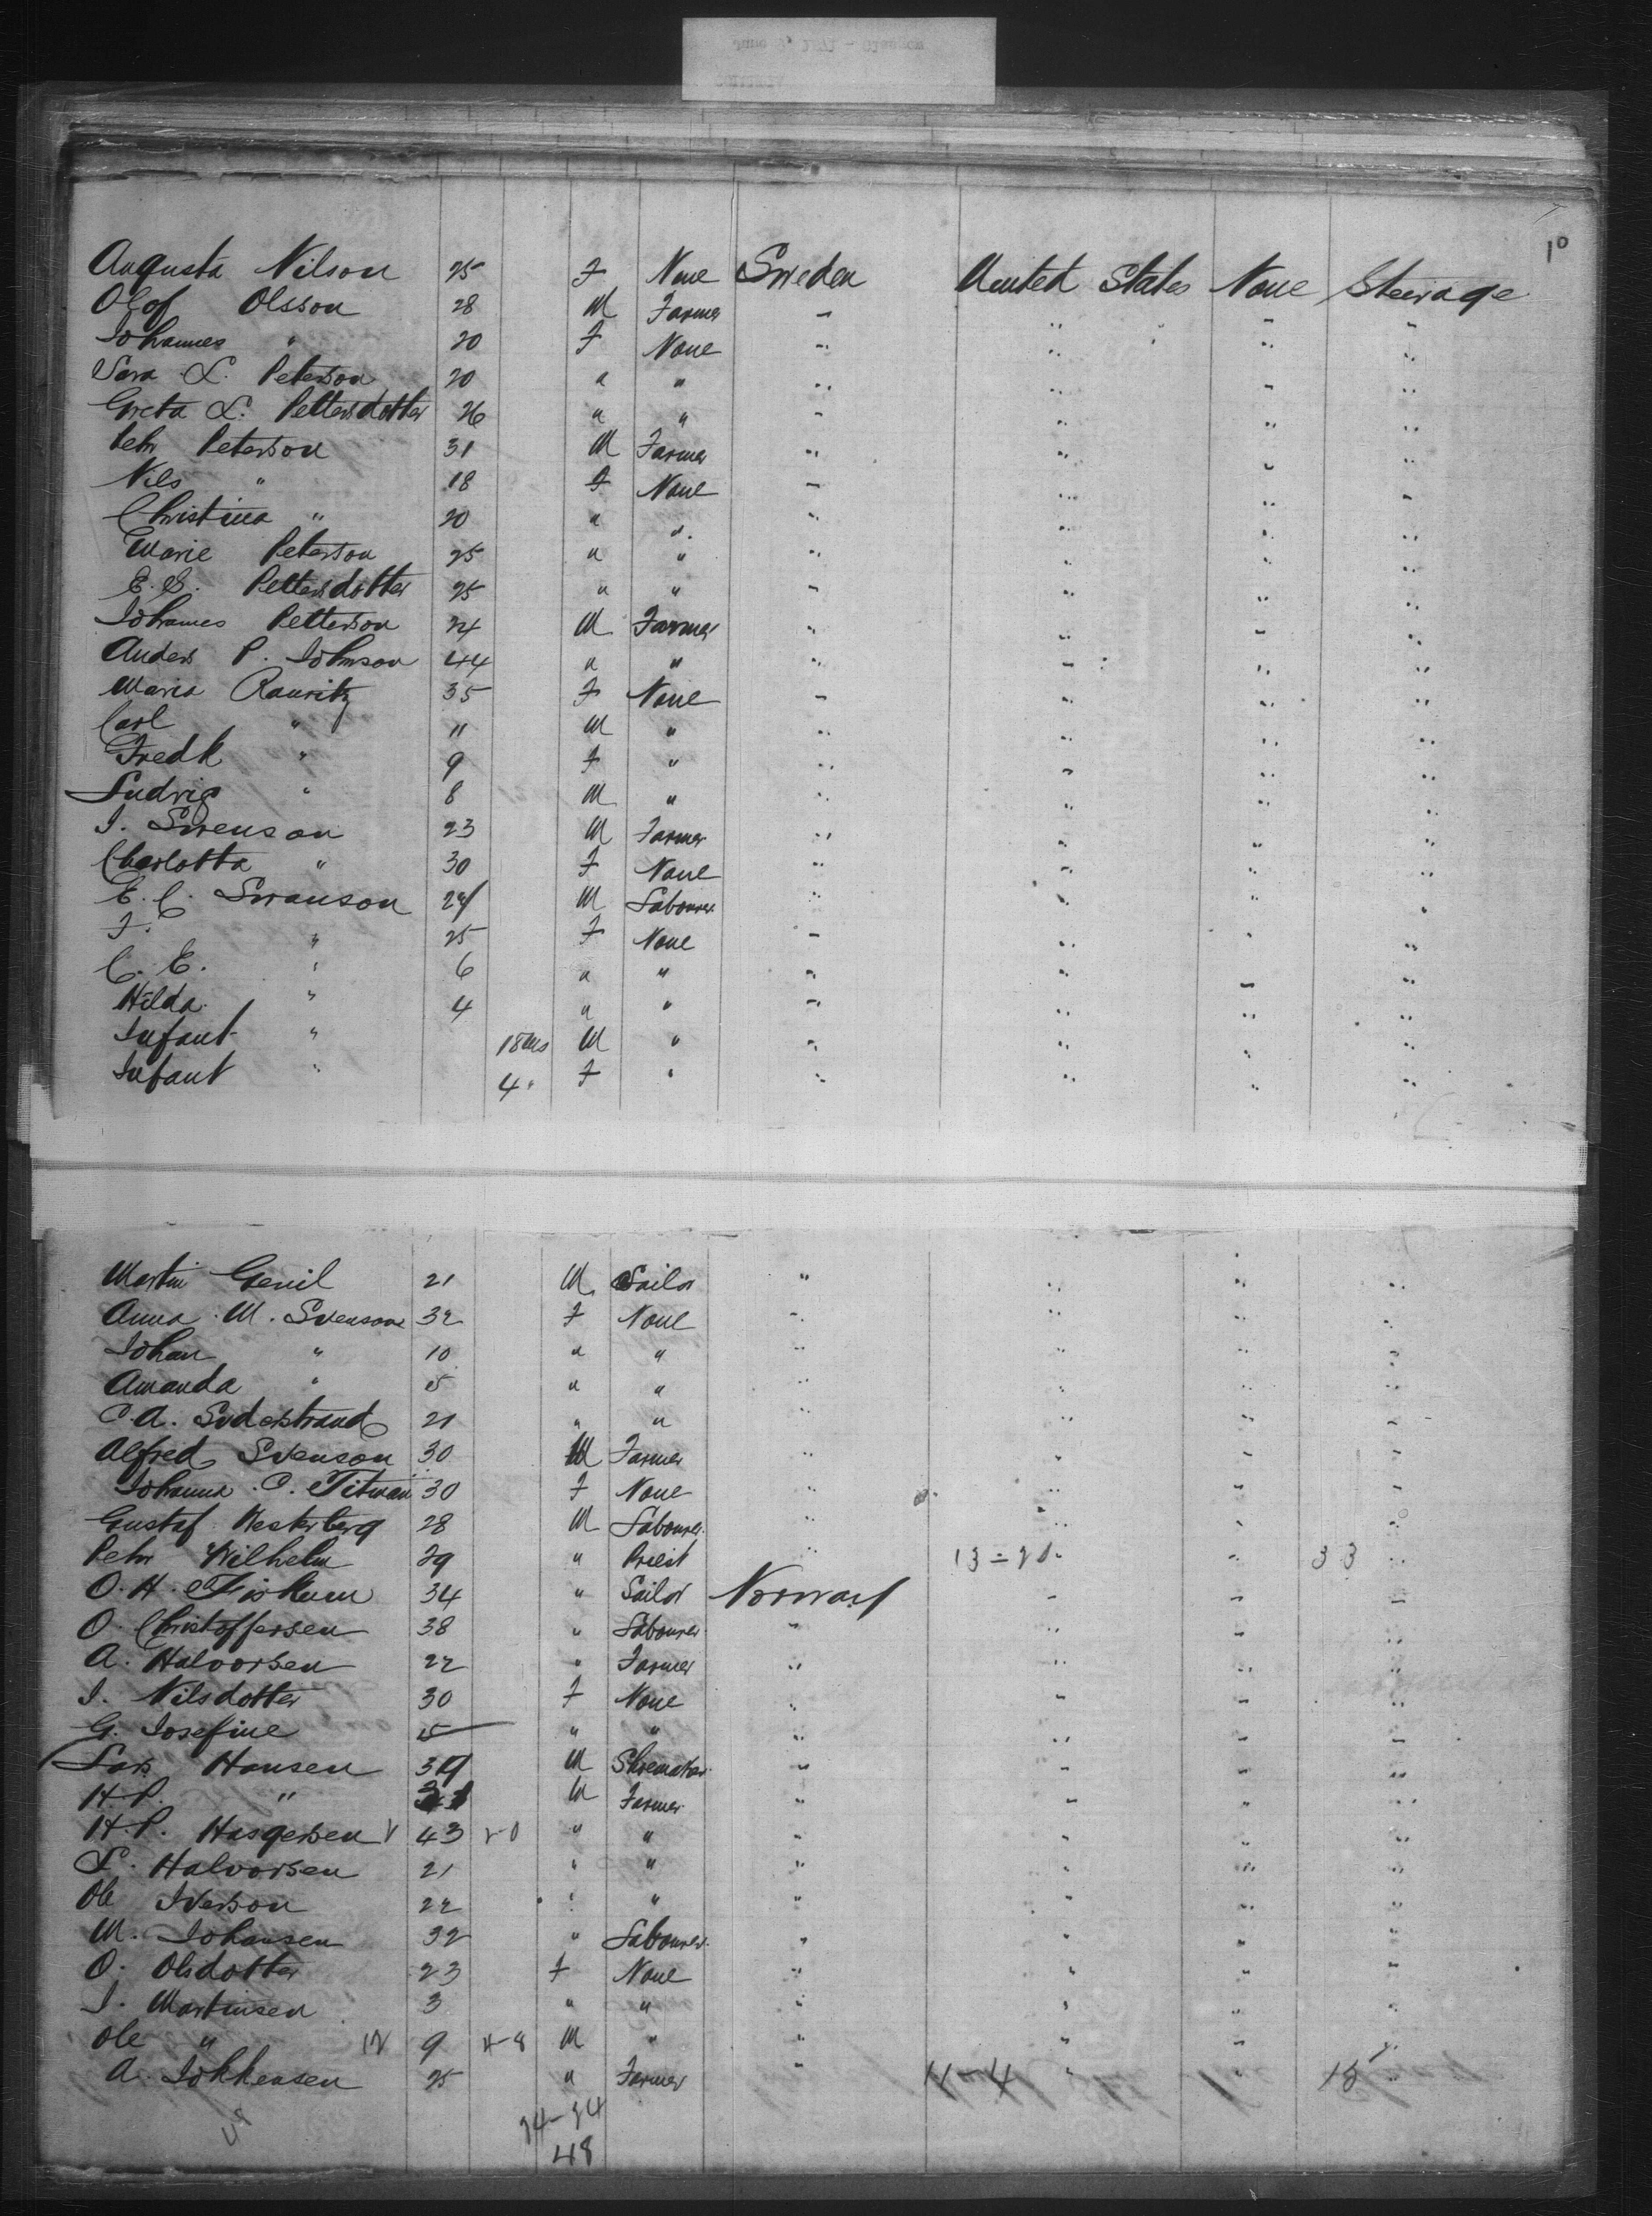 June 9, 1871 - Glasgow
10
Augusta Nilson 25 F None Sweden United States None Steerage
Olof Olsson 28 M Farmer " " " "
Johannes " 20 F None " " " "
Sara L. Peterson 20 " " " " " "
Greta L. Pettersdotter 26 " " " " " "
Pehr Peterson 31 M Farmer " " " "
Nils " 18 F None " " " "
Christina " 20 " " " " " "
Marie Peterson 25 " " " " " "
E. S. Pettersdotter 25 " " " " " "
Johannes Petterson 24 M Farmer " " " "
Anders P. Johnson 44 " " " " " "
Maria Rauritz 35 F None " " " "
Carl " 11 M " " " " "
Fredk " 9 F " " " " "
Ludvig " 8 M " " " " "
J. Swenson 23 M Farmer " " " "
Charlotta " 30 F None " " " "
E. C. Swanson 24 M Labourer " " " "
F. " 25 F None " " " "
C. E. " 6 " " " " " "
Hilda " 4 " " " " " "
Infant " 18 ms M " " " " "
Infant " 4 " F " " " " "
Martin Genil 21 M Sailor " " " "
Anna M. Svenson 32 F None " " " "
Johan " 10 " " " " " "
Amanda " 5 " " " " " "
C. A. Soderstrand 21 " " " " " "
Alfred Svenson 30 M Farmer " " " "
Johanna C. Titman 30 F None " " " "
Gustaf Westerberg 28 M Labourer " " " "
Pehr Wilhelm 29 " Priest " 13=20 " 33 "
O. H. Fiskum 34 " Sailor Norway " " "
O. Christoffersen 38 " Labourer " " " "
A. Halvorsen 22 " Farmer " " " "
J. Nilsdotter 30 F None " " " "
G. Josefine 5 " " " " " "
Lars Hansen 39 M Shoemaker " " " "
H. P. " M Farmer " " " "
H. P. Hasgersen V 43 " " " " " "
L. Halvorsen 21 " " " " " "
Ole Iverson 22 " " " " " "
M. Johansen 32 " Labourer " " " "
O. Olsdotter 23 F None " " " "
J. Martinsen 3 " " " " " "
Ole " 9 4-8 M " " " " "
A. Johkensen 25 " Farmer " 11-4 " " 15 "
48